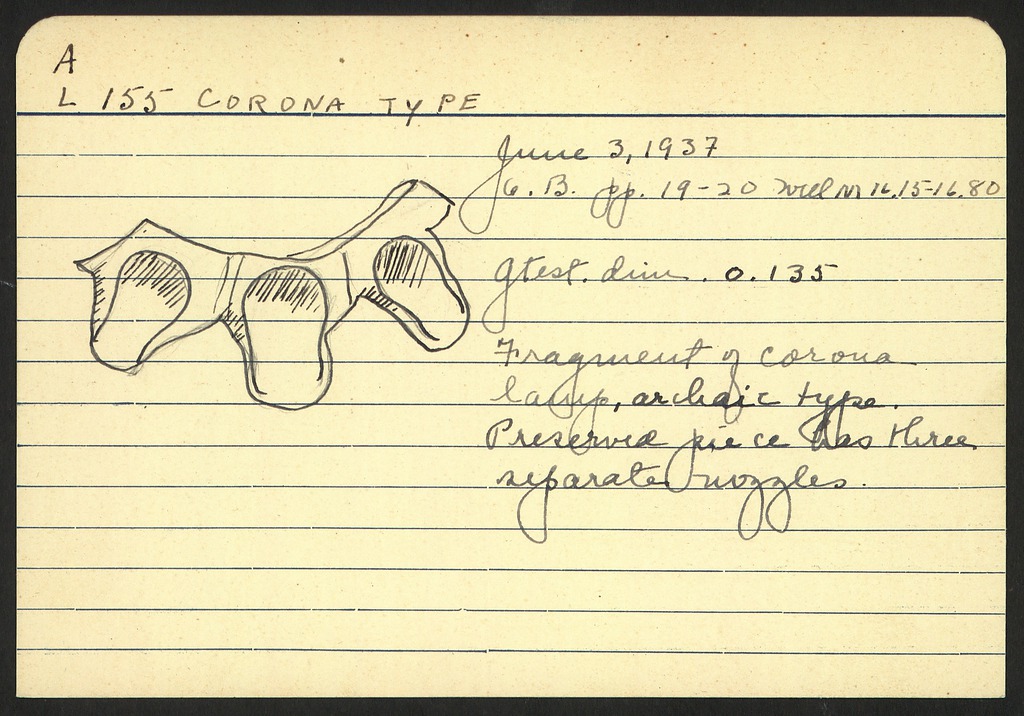 A
L 155 CORONA TYPE
June 3, 1937
G. B. pp. 19-20 Well M 16.15-16.80
Gtest. dim. 0.135
Fragment of corona
lamp, archaic type.
Preserved piece has three
separate nozzles.